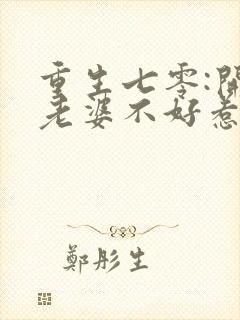 重生七零:開
老婆不好惹
鄭彤生